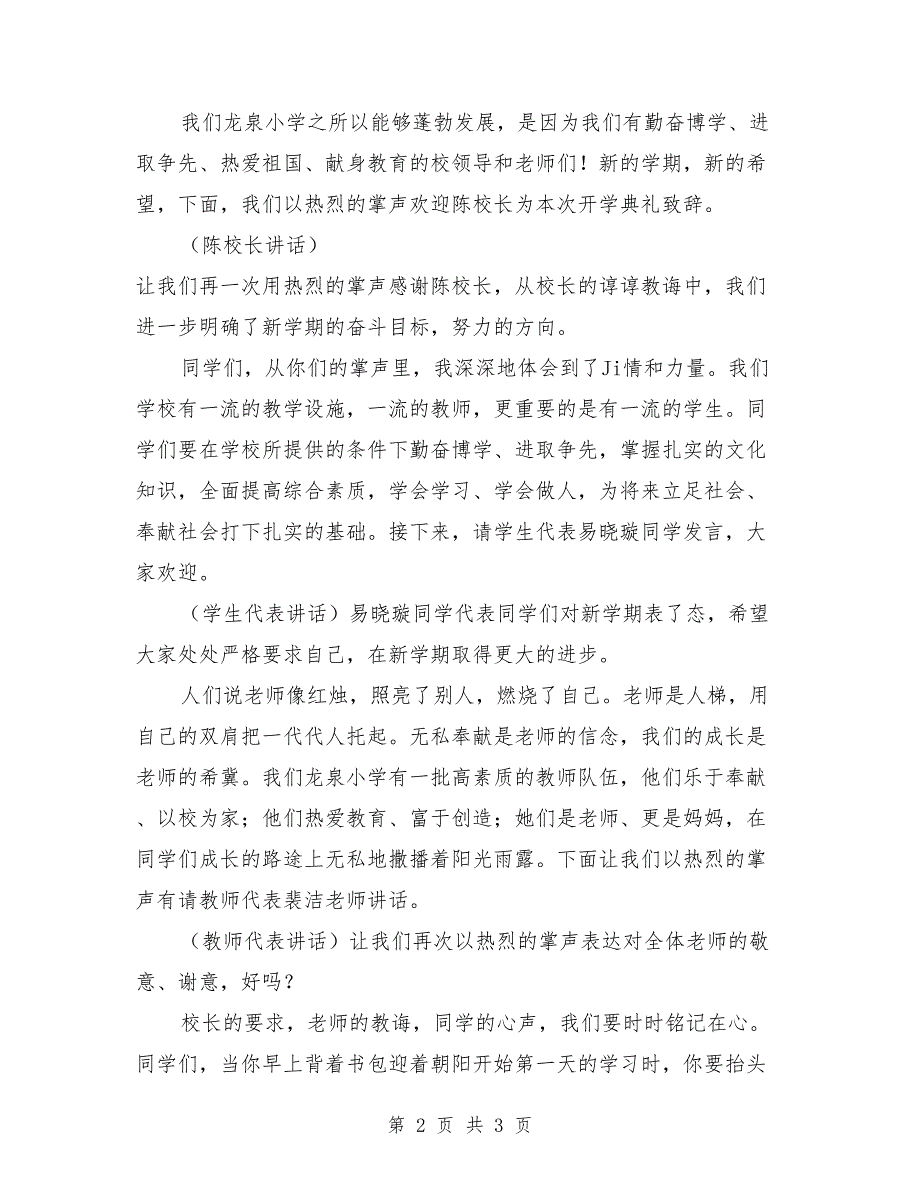 我们龙泉小学之所以能够蓬勃发展，是因为我们有勤奋博学、进
取争先、热爱祖国、献身教育的校领导和老师们！新的学期，新的希
望，下面，我们以热烈的掌声欢迎陈校长为本次开学典礼致辞。
（陈校长讲话）
让我们再一次用热烈的掌声感谢陈校长，从校长的谆谆教诲中，我们
进一步明确了新学期的奋斗目标，努力的方向。
同学们，从你们的掌声里，我深深地体会到了Ji情和力量。我们
学校有一流的教学设施，一流的教师，更重要的是有一流的学生。同
学们要在学校所提供的条件下勤奋博学、进取争先，掌握扎实的文化
知识，全面提高综合素质，学会学习、学会做人，为将来立足社会、
奉献社会打下扎实的基础。接下来，请学生代表易晓璇同学发言，大
家欢迎。
（学生代表讲话）易晓璇同学代表同学们对新学期表了态，希望
大家处处严格要求自己，在新学期取得更大的进步。
人们说老师像红烛，照亮了别人，燃烧了自己。老师是人梯，用
自己的双肩把一代代人托起。无私奉献是老师的信念，我们的成长是
老师的希冀。我们龙泉小学有一批高素质的教师队伍，他们乐于奉献
、以校为家；他们热爱教育、富于创造；她们是老师、更是妈妈，在
同学们成长的路途上无私地撒播着阳光雨露。下面让我们以热烈的掌
声有请教师代表裴洁老师讲话。
（教师代表讲话）让我们再次以热烈的掌声表达对全体老师的敬
意、谢意，好吗？
校长的要求，老师的教诲，同学的心声，我们要时时铭记在心。
同学们，当你早上背着书包迎着朝阳开始第一天的学习时，你要抬头
第 2 页 共 3 页